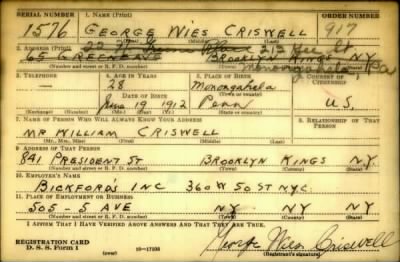 SERIAL NUMBER 1. NAME (Print) ORDER NUMBER
1576 GEORGE WIES CRISWELL 917
2. ADDRESS (Print)
65 GREENE AVE BROOKLYN KINGS NY
(Number and street or R. F. D. number) (Town) (County) (State)
Monongahela, Pa
3. TELEPHONE 4. AGE IN YEARS 5. PLACE OF BIRTH 6. COUNTRY OF CITIZENSHIP
28 Monongahela
(Town or county)
DATE OF BIRTH
June 19 1912 Penn U.S.
(Exchange) (Number) (Mo.) (Day) (Yr.) (State or country)
7. NAME OF PERSON WHO WILL ALWAYS KNOW YOUR ADDRESS 8. RELATIONSHIP OF THAT PERSON
MR WILLIAM CRISWELL
(Mr., Mrs., Miss) (First) (Middle) (Last)
9. ADDRESS OF THAT PERSON
841 PRESIDENT ST BROOKLYN KINGS N.Y.
(Number and street or R. F. D. number) (Town) (County) (State)
10. EMPLOYER'S NAME
BICKFORD'S INC 360 W 50 ST NYC
11. PLACE OF EMPLOYMENT OR BUSINESS
505 - 5 AVE NY NY N.Y.
(Number and street or R. F. D. number) (Town) (County) (State)
I AFFIRM THAT I HAVE VERIFIED ABOVE ANSWERS AND THAT THEY ARE TRUE.
REGISTRATION CARD
D. S. S. Form 1 (over) 16-17105 George Wies Criswell
(Registrant's signature)